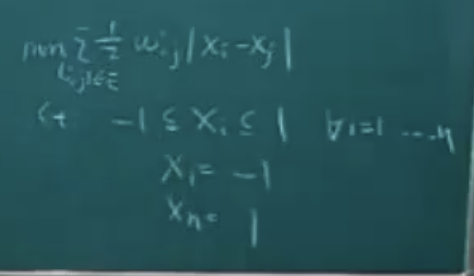 min Σ 1/2 wᵢⱼ |xᵢ - xⱼ|
(i,j)∈E
st -1 ≤ xᵢ ≤ 1 ∀i=1 ... n
x₁ = -1
xₙ = 1